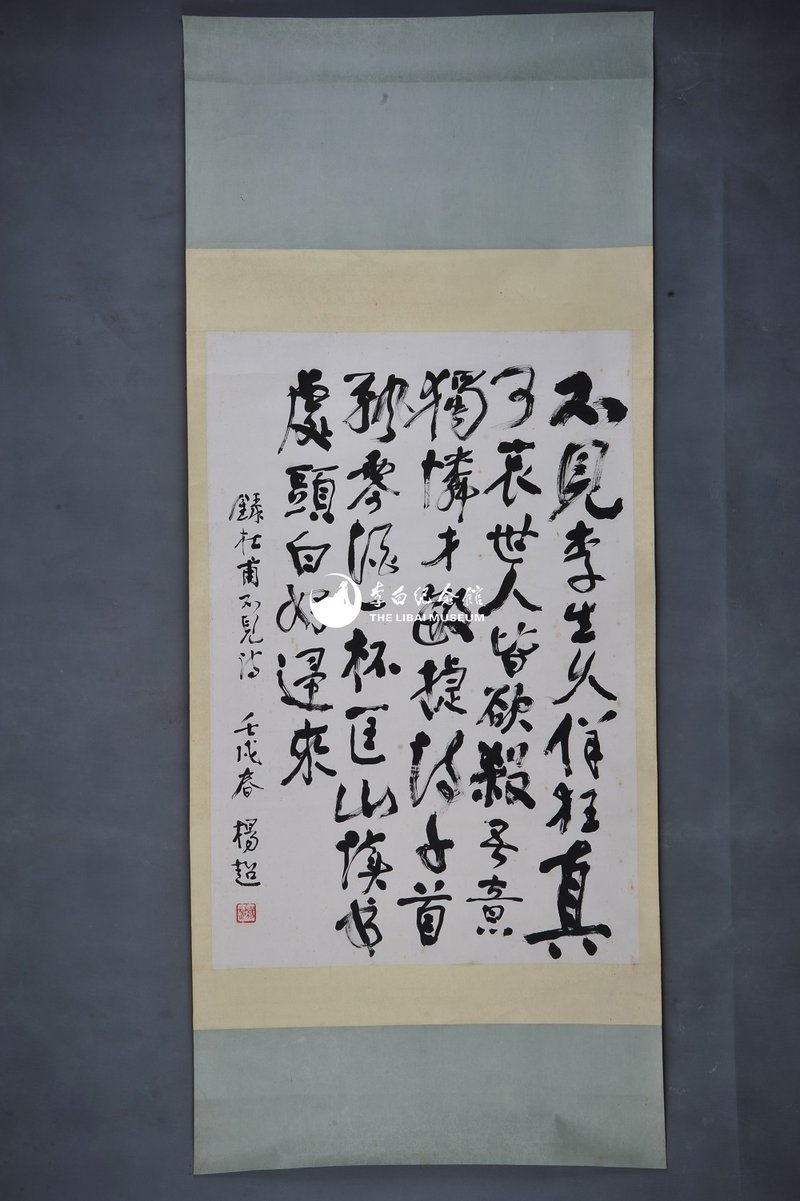 不見李生久佯狂真
可哀世人皆欲殺吾意
獨憐才敏捷詩千首
飄零酒一杯匡山讀书
處頭白好歸來
録杜甫不見詩 壬戌春 楊超
李白纪念館
THE LIBAI MUSEUM